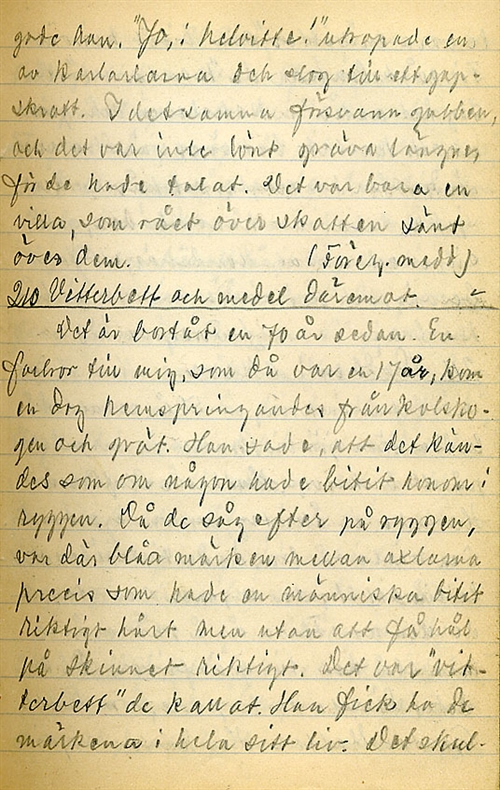 grde han. "Jo, i helvitte!" utropade en
av karlarlarna och slog till ett gap-
skratt. I detsamma försvann gubben,
och det var inte lönt gräva längre,
för de hade talat. Det var bara en
villa, som rået över skatten sänt
över dem. (Föreg. medd.)
210 Vitterbett och medel däremot.
Det är bortåt en 70 år sedan. En
farbror till mig, som då var en 17 år, kom
en dag hemspringandes från kolsko-
gen och grät. Han sade, att det kän-
des som om någon hade bitit honom i
ryggen. Då de såg efter på ryggen,
var där blåa märken mellan axlarna
precis som hade en människa bitit
riktigt hårt men utan att få hål
på skinnet riktigt. Det var "vit-
terbett" de kallat. Han fick ha de
märkena i hela sitt liv. Det skul-